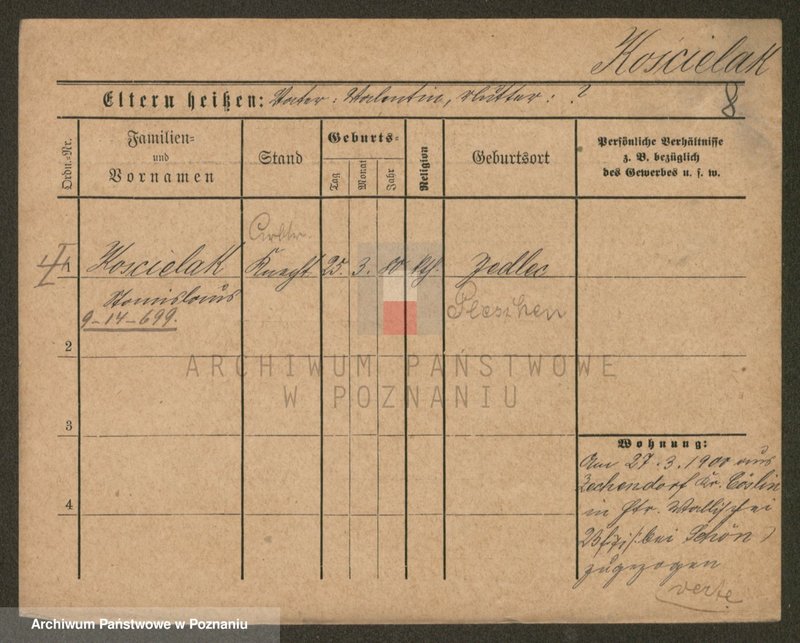 Kościelak
Eltern heißen: Vater: Valentin, Mutter: ?
8
Ordn.=Nr.
Familien=
und
Vornamen
Stand
Geburts=
Tag
Monat
Jahr
Religion
Geburtsort
Persönliche Verhältnisse
z. B. bezüglich
des Gewerbes u. s. w.
1
Koscielak
Stanislaus
9-14-699.
Arbtr.
Knecht
25. 3. 80 kth.
Jedlec
Pleschen
2
3
4
Wohnung:
Am 27.3.1900 aus
Zechendorf Kr. Cöslin
in Str. Wallischei
bei Schön
zugezogen
verte
ARCHIWUM PAŃSTWOWE
W POZNANIU
Archiwum Państwowe w Poznaniu